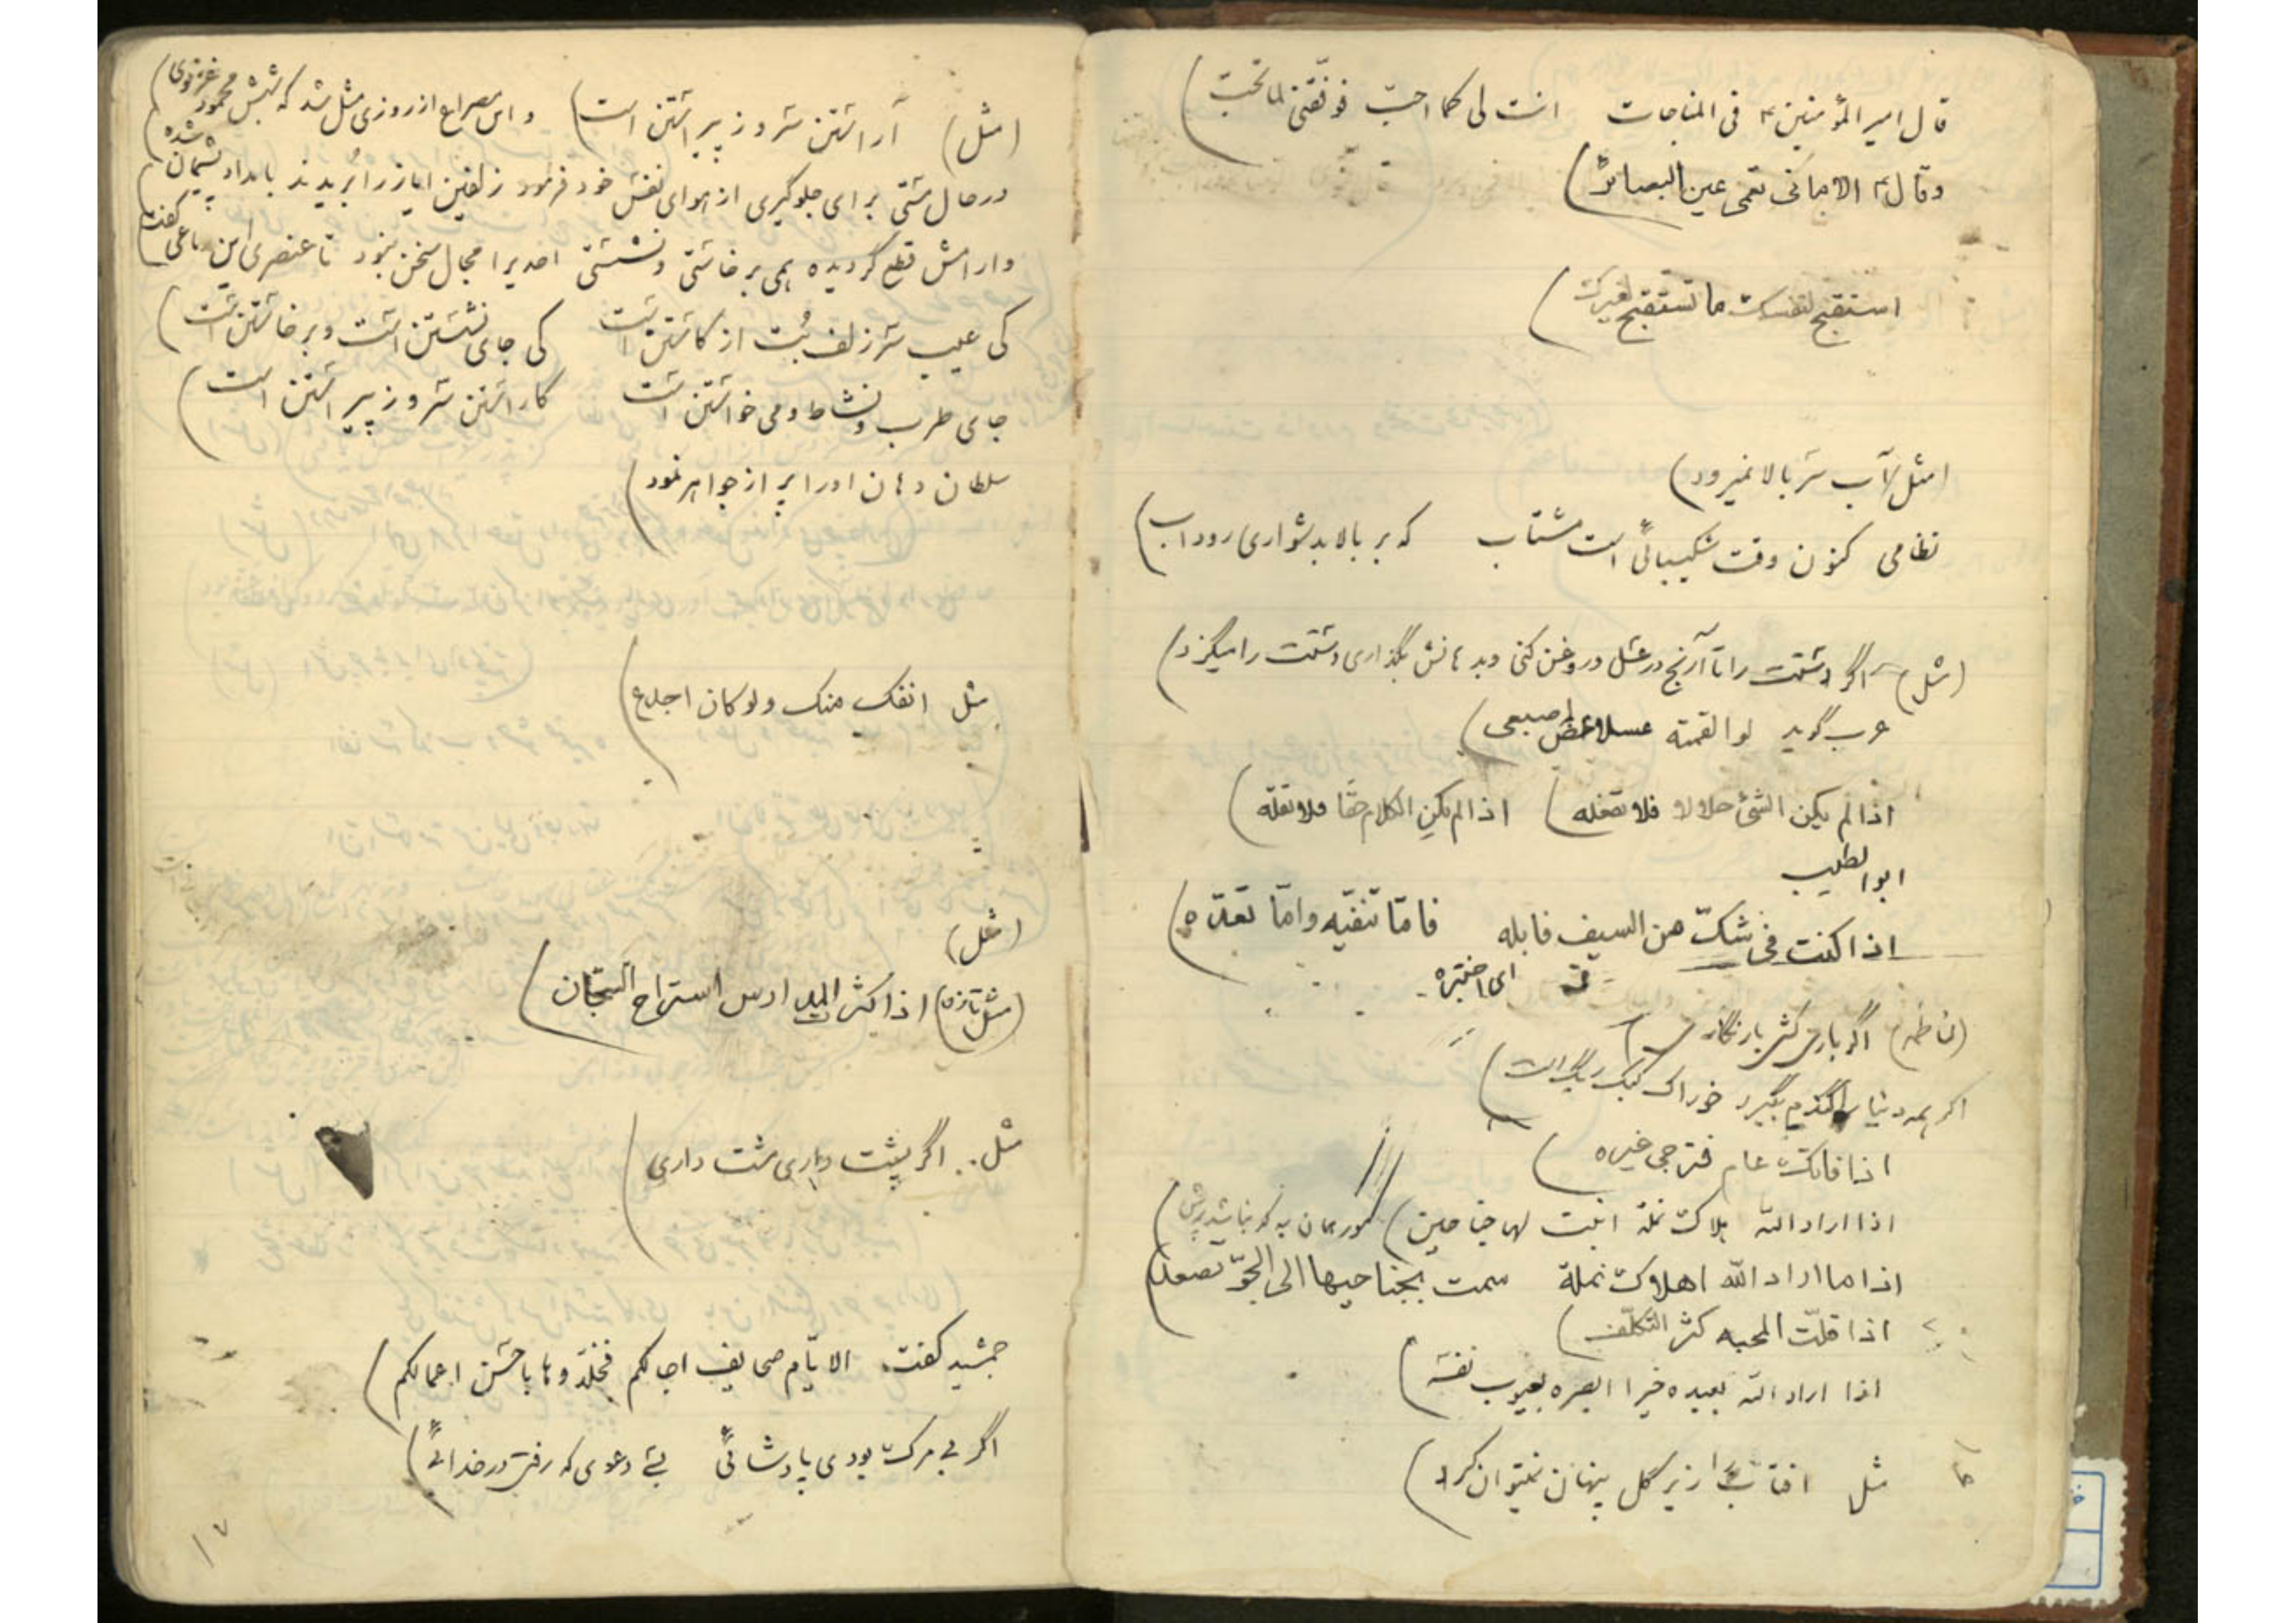 قال امیر المؤمنین ؑ فی المناجات انت لی کما احبّ فوفّقنی لما تحبّ)
وقال ؑ الامانی تعمی عین البصائر)
استقبح لنفسک ما تستقبح لغیرک)
(مثل) آب سر بالا نمیرود)
نظامی کنون وقت شکیبائی است مشتاب که بر بالا بدشواری رود اب)
(مثل) اگر دستت را تا آرنج در عسل و روغن کنی و بدهانش بگذاری دستت را میگزد)
عرب گوید لو القمته عسلا عض اصبعی)
اذا لم یکن الشئ حلالا فلا تفعله) اذا لم یکن الکلام حقا فلا تقله)
ابوالطیب
اذا کنت فی شکّ من السیف فابله فامّا تنفّیه وامّا تعدّه)
ای اختبره
اگر بارش کش بار نگار
اگر همه دنیا را گندم بگیرد خوراک کبک ریگ است)
اذا فاتک عام فترجی غیره)
اذا اراد الله هلاک نملة انبت لها جناحین) مور همان به که نباشد پرش)
اذا ما اراد الله اهلاک نملة سمت بجناحیها الی الجوّ تصعد)
اذا قلّت المحبه کثر التکلّف)
اذا اراد الله بعبده خیرا ابصره بعیوب نفسه)
مثل افتاب را زیر گل پنهان نمیتوان کرد)
(مثل) آراستن سرو ز پیراستن است) و این مصراع از روزی مثل شد که شبش محمود غزنوی)
در حال مستی برای جلوگیری از هوای نفس خود فرمود زلفین ایاز را بریدند بامداد پشیمان شده)
وارامش قطع گردیده همی برخاستی و نشستی احدیرا مجال سخن نبود تا عنصری این رباعی گفت)
کی عیب سر زلف بُت از کاستن است کی جای نشستن است و برخاستن است)
جای طرب و نشاط و می خواستن است کاراستن سرو ز پیراستن است)
سلطان دهان اورا پر از جواهر نمود)
مثل انفک منک ولو کان اجدع)
(مثل)
(مثل تازه) اذا کثر المدارس استراح السجّان)
مثل .. اگر پشت داری مشت داری)
جمشید گفت، الایّام صحایف اجالکم فخلّدوها باحسن اعمالکم)
اگر بی مرگ بودی پادشائی بسے دعوی که رفتی در خدائی)
۱۷